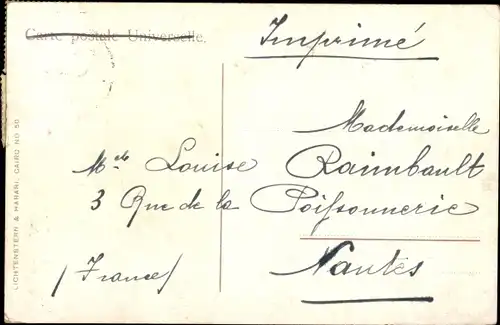 Carte postale Universelle.
Imprimé
Mademoiselle
Mlle Louise Raimbault
3 Rue de la Poissonnerie
Nantes
(France)
LICHTENSTERN & HARARI, CAIRO NO 50